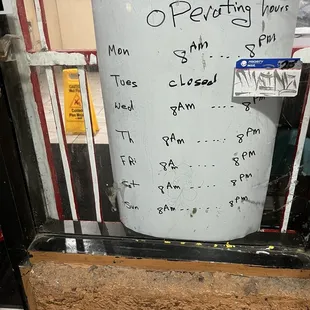 operating hours
Mon 8Am ..... 8Pm
Tues closed
Wed 8Am ..... 8Pm
Th 8Am ..... 8Pm
Fri 8A ..... 8Pm
Sat 8Am ..... 8Pm
Sun 8Am ..... 8Pm